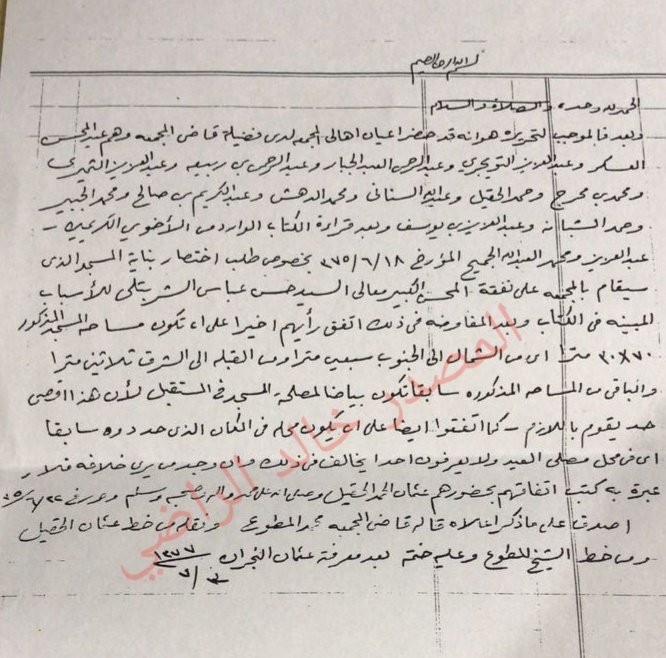 بسم الله الرحمن الرحيم
الحمد لله وحده والصلاة والسلام
وبعد فالموجب لتحريره هو انه قد حضر اعيان اهالي المجمعه لدى فضيلة قاضي المجمعه وهم عبد المحسن
العسكر وعبد العزيز التويجري وعبد الرحمن العبد الجبار وعبد الرحمن بن ربيعه وعبد العزيز التميري
ومحمد بن محرج وحمد الحقيل وعبد الله السناني ومحمد الدهش وعبد الكريم بن صالح ومحمد الجبير
وحمد الشبانه وعبد العزيز بن يوسف وبعد قراءة الكتاب الوارد من الأخوين الكريمين -
عبد العزيز ومحمد العبد الله الجميح المؤرخ ٣٧٥/٦/١٨ بخصوص طلب اختصار بناية المسجد الذي
سيقام بالمجمعه على نفقة المحسن الكبير معالي السيد حسن عباس الشربتلي للأسباب
المبينه في الكتاب وبعد المفاوضه في ذلك اتفق رأيهم اخيرا على ان تكون مساحة المسجد المذكور
٧٠×٣٠ مترا اي من الشمال الى الجنوب سبعين مترا ومن القبله الى الشرق ثلاثين مترا
والباقي من المساحه المذكوره سابقا تكون بياضا لمصلحة المسجد في المستقبل لأن هذا اقصى
حد يقوم باللازم - كما اتفقوا ايضا على ان يكون محله في المكان الذي حددوه سابقا
اي في محل مصلى العيد ولا يعرفون احدا يخالف في ذلك وان وجد من يرى خلافه فلا
عبرة به كتب اتفاقهم بحضورهم عثمان الحمد الحقيل وصلى الله على محمد وآله وصحبه وسلم
اصدق على ما ذكر اعلاه قاله قاضي المجمعه محمد المطوع ونقله من خط عثمان الحقيل
ومن خط الشيخ المطوع وعليه ختمه بعد معرفته عثمان النجران ١٣٧٧/٧/٣
المصدر خالد الراضي